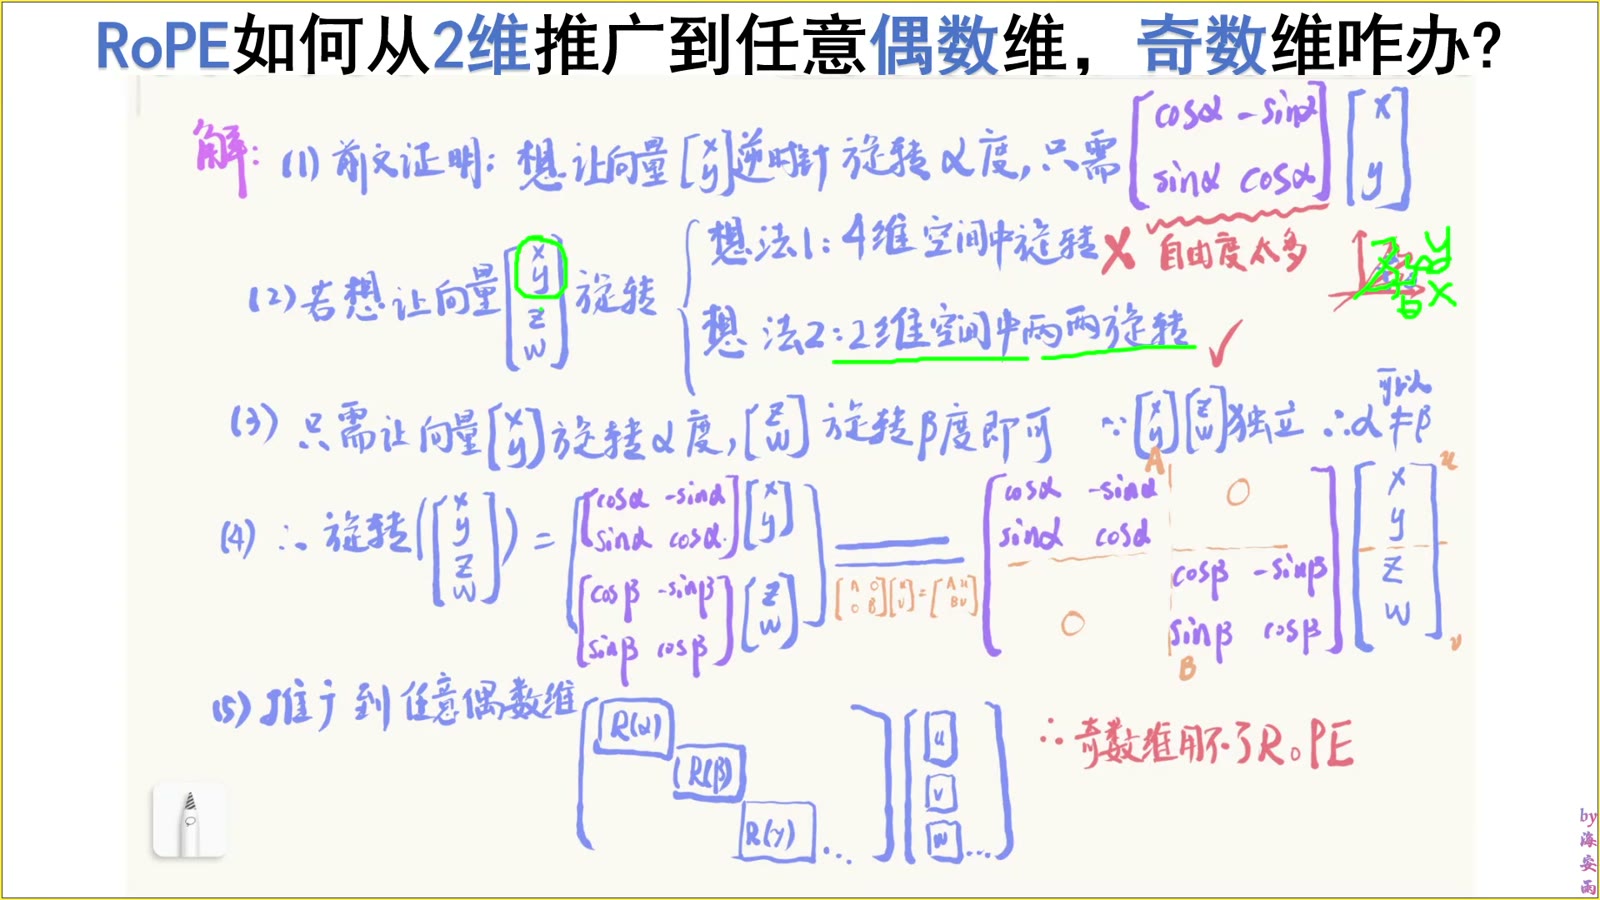 RoPE如何从2维推广到任意偶数维，奇数维咋办?
解: (1) 前文证明: 想让向量[x y]逆时针旋转α度,只需[cosα -sinα sinα cosα][x y]
(2) 若想让向量[x y z w]旋转
想法1: 4维空间中旋转 X 自由度太多
想法2: 2维空间中两两旋转 ✓
y
x
(3) 只需让向量[x y]旋转α度,[z w]旋转β度即可 ∵[x y][z w]独立 ∴α可以≠β
(4) ∴旋转([x y z w]) = [[cosα -sinα sinα cosα][x y] [cosβ -sinβ sinβ cosβ][z w]] = [cosα -sinα 0 sinα cosα 0 cosβ -sinβ 0 sinβ cosβ][x y z w]
[A 0 0 B][u v]=[Au Bv]
A
B
u
v
(5) 推广到任意偶数维 [R(α) R(β) R(γ) ...][u v w ...] ∴奇数维用不了RoPE
by
海
安
雨